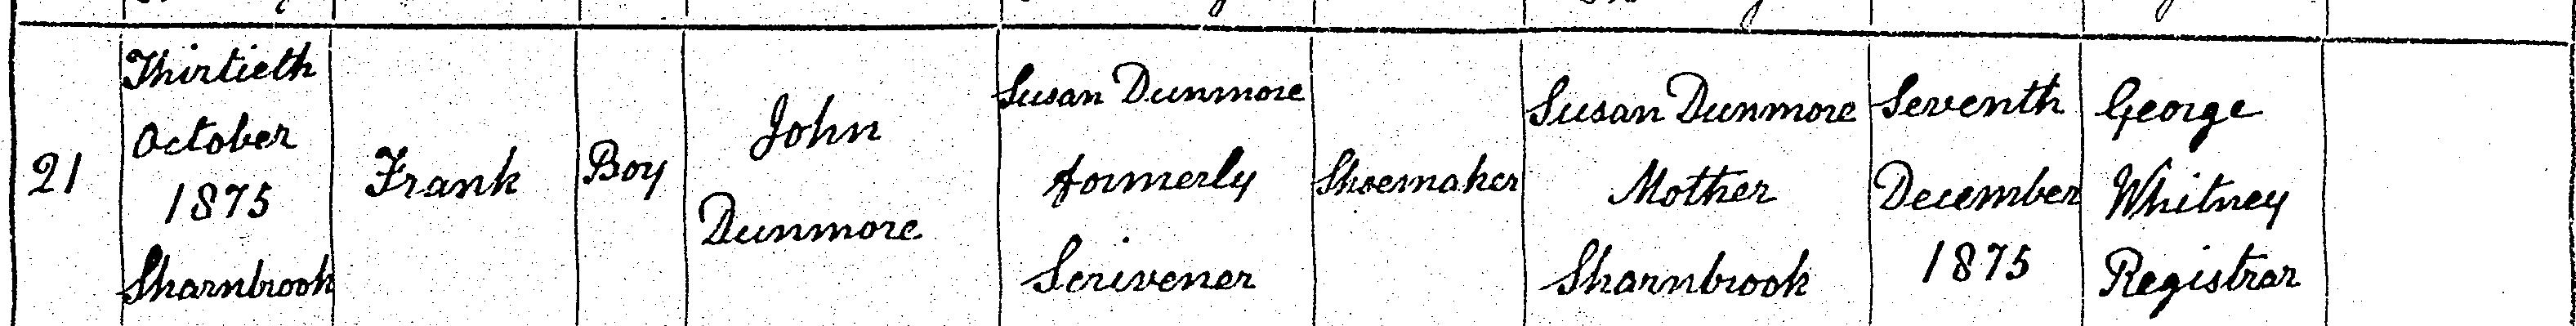 21
Thirtieth
October
1875
Sharnbrook
Frank
Boy
John
Dunmore
Susan Dunmore
formerly
Scrivener
Shoemaker
Susan Dunmore
Mother
Sharnbrook
Seventh
December
1875
George
Whitney
Registrar